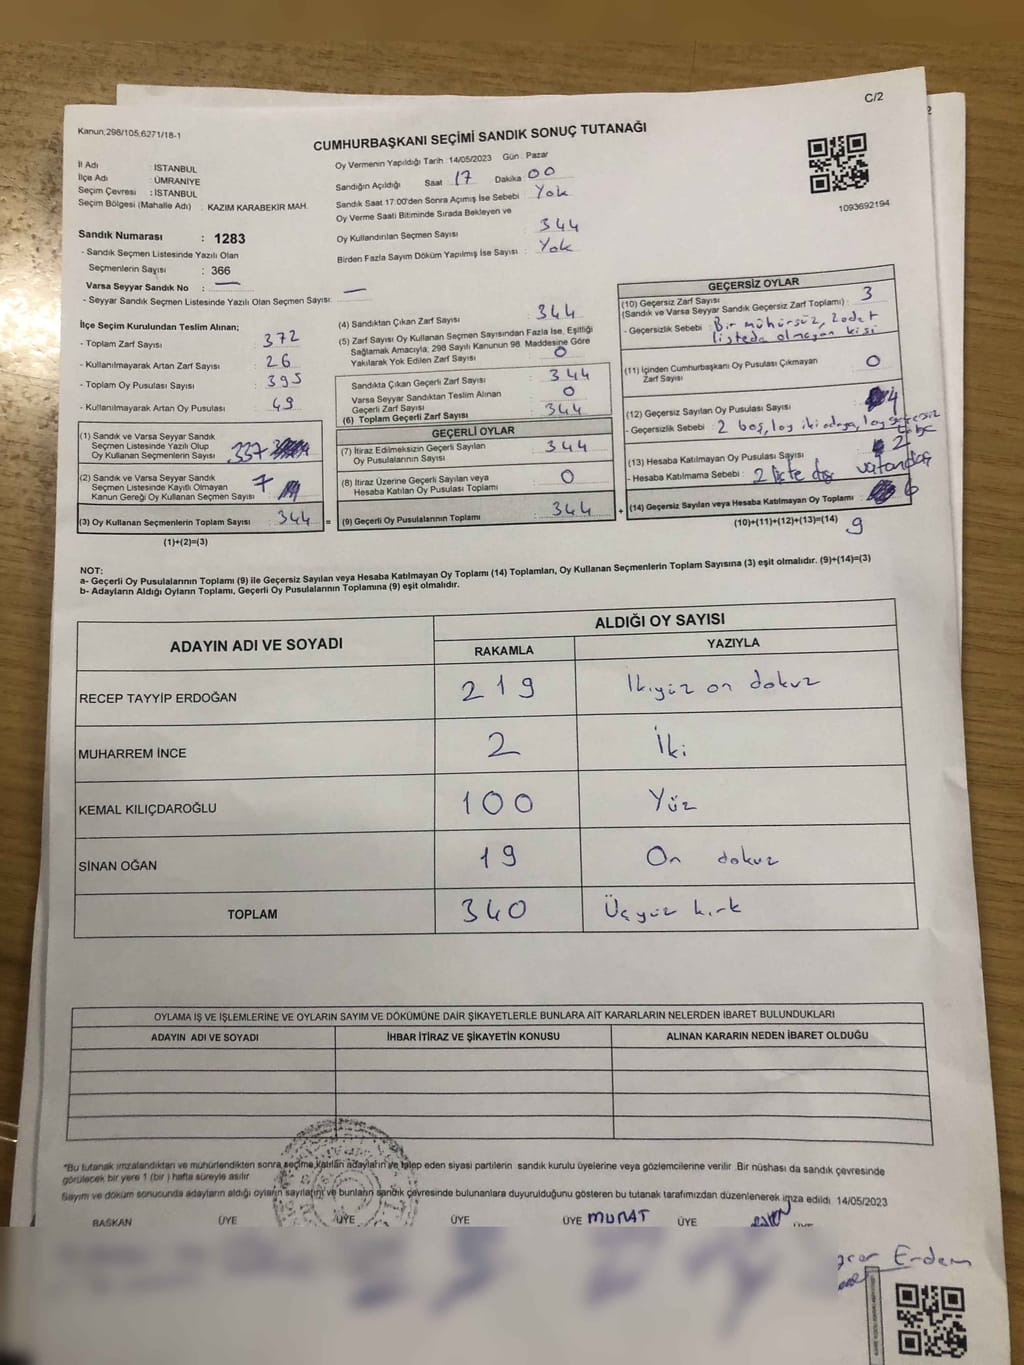 C/2
Kanun;298/105,6271/18-1
CUMHURBAŞKANI SEÇİMİ SANDIK SONUÇ TUTANAĞI
İl Adı : İSTANBUL
İlçe Adı : ÜMRANİYE
Seçim Çevresi : İSTANBUL
Seçim Bölgesi (Mahalle Adı) : KAZIM KARABEKİR MAH.
Oy Vermenin Yapıldığı Tarih : 14/05/2023 Gün : Pazar
Sandığın Açıldığı Saat 17 Dakika 00
Sandık Saat 17:00'den Sonra Açımış İse Sebebi : Yok
Oy Verme Saati Bitiminde Sırada Bekleyen ve
Oy Kullandırılan Seçmen Sayısı : 344
Birden Fazla Sayım Döküm Yapılmış İse Sayısı : Yok
1093692194
Sandık Numarası : 1283
- Sandık Seçmen Listesinde Yazılı Olan
Seçmenlerin Sayısı : 366
Varsa Seyyar Sandık No : —
- Seyyar Sandık Seçmen Listesinde Yazılı Olan Seçmen Sayısı: —
İlçe Seçim Kurulundan Teslim Alınan;
- Toplam Zarf Sayısı : 372
- Kullanılmayarak Artan Zarf Sayısı : 26
- Toplam Oy Pusulası Sayısı : 395
- Kullanılmayarak Artan Oy Pusulası : 49
(1) Sandık ve Varsa Seyyar Sandık
Seçmen Listesinde Yazılı Olup
Oy Kullanan Seçmenlerin Sayısı : 337
(2) Sandık ve Varsa Seyyar Sandık
Seçmen Listesinde Kayıtlı Olmayan
Kanun Gereği Oy Kullanan Seçmen Sayısı : 7
(3) Oy Kullanan Seçmenlerin Toplam Sayısı : 344 =
(1)+(2)=(3)
(4) Sandıktan Çıkan Zarf Sayısı : 344
(5) Zarf Sayısı Oy Kullanan Seçmen Sayısından Fazla İse, Eşitliği
Sağlamak Amacıyla, 298 Sayılı Kanunun 98. Maddesine Göre
Yakılarak Yok Edilen Zarf Sayısı : 0
Sandıkta Çıkan Geçerli Zarf Sayısı : 344
Varsa Seyyar Sandıktan Teslim Alınan
Geçerli Zarf Sayısı : 0
(6) Toplam Geçerli Zarf Sayısı : 344
GEÇERLİ OYLAR
(7) İtiraz Edilmeksizin Geçerli Sayılan
Oy Pusulasının Sayısı : 344
(8) İtiraz Üzerine Geçerli Sayılan veya
Hesaba Katılan Oy Pusulası Toplamı : 0
(9) Geçerli Oy Pusulalarının Toplamı : 344 +
GEÇERSİZ OYLAR
(10) Geçersiz Zarf Sayısı
(Sandık ve Varsa Seyyar Sandık Geçersiz Zarf Toplamı) : 3
- Geçersizlik Sebebi : Bir mühürsüz, 2 adet
listede olmayan kişi
(11) İçinden Cumhurbaşkanı Oy Pusulası Çıkmayan
Zarf Sayısı : 0
(12) Geçersiz Sayılan Oy Pusulası Sayısı : 4
- Geçersizlik Sebebi : 2 boş, 1 oy iki adaya, 1 oy geçersiz
(13) Hesaba Katılmayan Oy Pusulası Sayısı : 2
- Hesaba Katılmama Sebebi : 2 liste dışı vatandaş
(14) Geçersiz Sayılan veya Hesaba Katılmayan Oy Toplamı : 6
(10)+(11)+(12)+(13)=(14) 9
NOT:
a- Geçerli Oy Pusulalarının Toplamı (9) ile Geçersiz Sayılan veya Hesaba Katılmayan Oy Toplamı (14) Toplamları, Oy Kullanan Seçmenlerin Toplam Sayısına (3) eşit olmalıdır. (9)+(14)=(3)
b- Adayların Aldığı Oyların Toplamı, Geçerli Oy Pusulalarının Toplamına (9) eşit olmalıdır.
ADAYIN ADI VE SOYADI ALDIĞI OY SAYISI
RAKAMLA YAZIYLA
RECEP TAYYİP ERDOĞAN 219 İkiyüz on dokuz
MUHARREM İNCE 2 İki
KEMAL KILIÇDAROĞLU 100 Yüz
SİNAN OĞAN 19 On dokuz
TOPLAM 340 Üçyüz kırk
OYLAMA İŞ VE İŞLEMLERİNE VE OYLARIN SAYIM VE DÖKÜMÜNE DAİR ŞİKAYETLERLE BUNLARA AİT KARARLARIN NELERDEN İBARET BULUNDUKLARI
ADAYIN ADI VE SOYADI İHBAR İTİRAZ VE ŞİKAYETİN KONUSU ALINAN KARARIN NEDEN İBARET OLDUĞU
"Bu tutanak imzalandıktan ve mühürlendikten sonra seçime katılan adayların ve talep eden siyasi partilerin sandık kurulu üyelerine veya gözlemcilerine verilir Bir nüshası da sandık çevresinde
görülecek bir yere 1 (bir ) hafta süreyle asılır
Sayım ve döküm sonucunda adayların aldığı oyların sayılarını ve bunların sandık çevresinde bulunanlara duyurulduğunu gösteren bu tutanak tarafımızdan düzenlenerek imza edildi. 14/05/2023
BAŞKAN ÜYE ÜYE ÜYE ÜYE MURAT ÜYE
Erdem